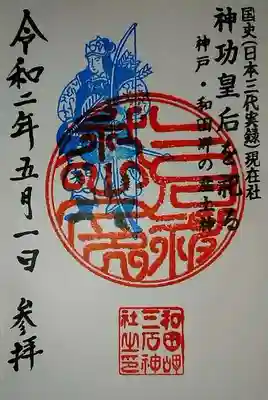 国史(日本三代実録)現在社
神功皇后を祀る
神戸・和田岬の産土神
令和二年五月一日
参拝
和田岬
三石神
社之印